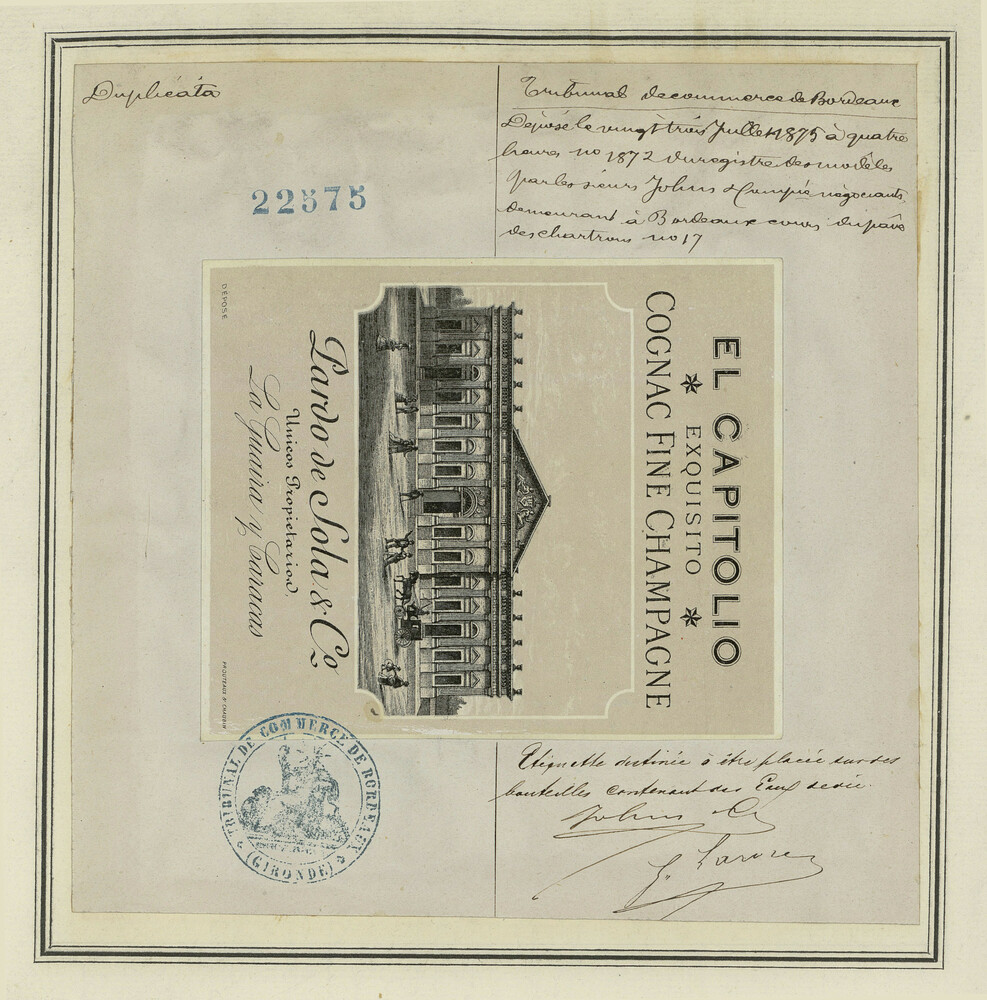 Duplicata
22575
Tribunal de commerce de Bordeaux
Déposé le vingt trois Juillet 1875 à quatre
heures no 1872 du registre des modèles
par les sieurs Johns & Compie négociants
demeurant à Bordeaux cours du pavé
des chartrons no 17
EL CAPITOLIO
EXQUISITO
COGNAC FINE CHAMPAGNE
Pardo de Sola & Co
Unicos Propietarios.
La Guaira y Caracas
DÉPOSÉ
Etiquette destinée à être placée sur des
bouteilles contenant des Eaux de vie.
Johns & Co
TRIBUNAL DE COMMERCE DE BORDEAUX
(GIRONDE)